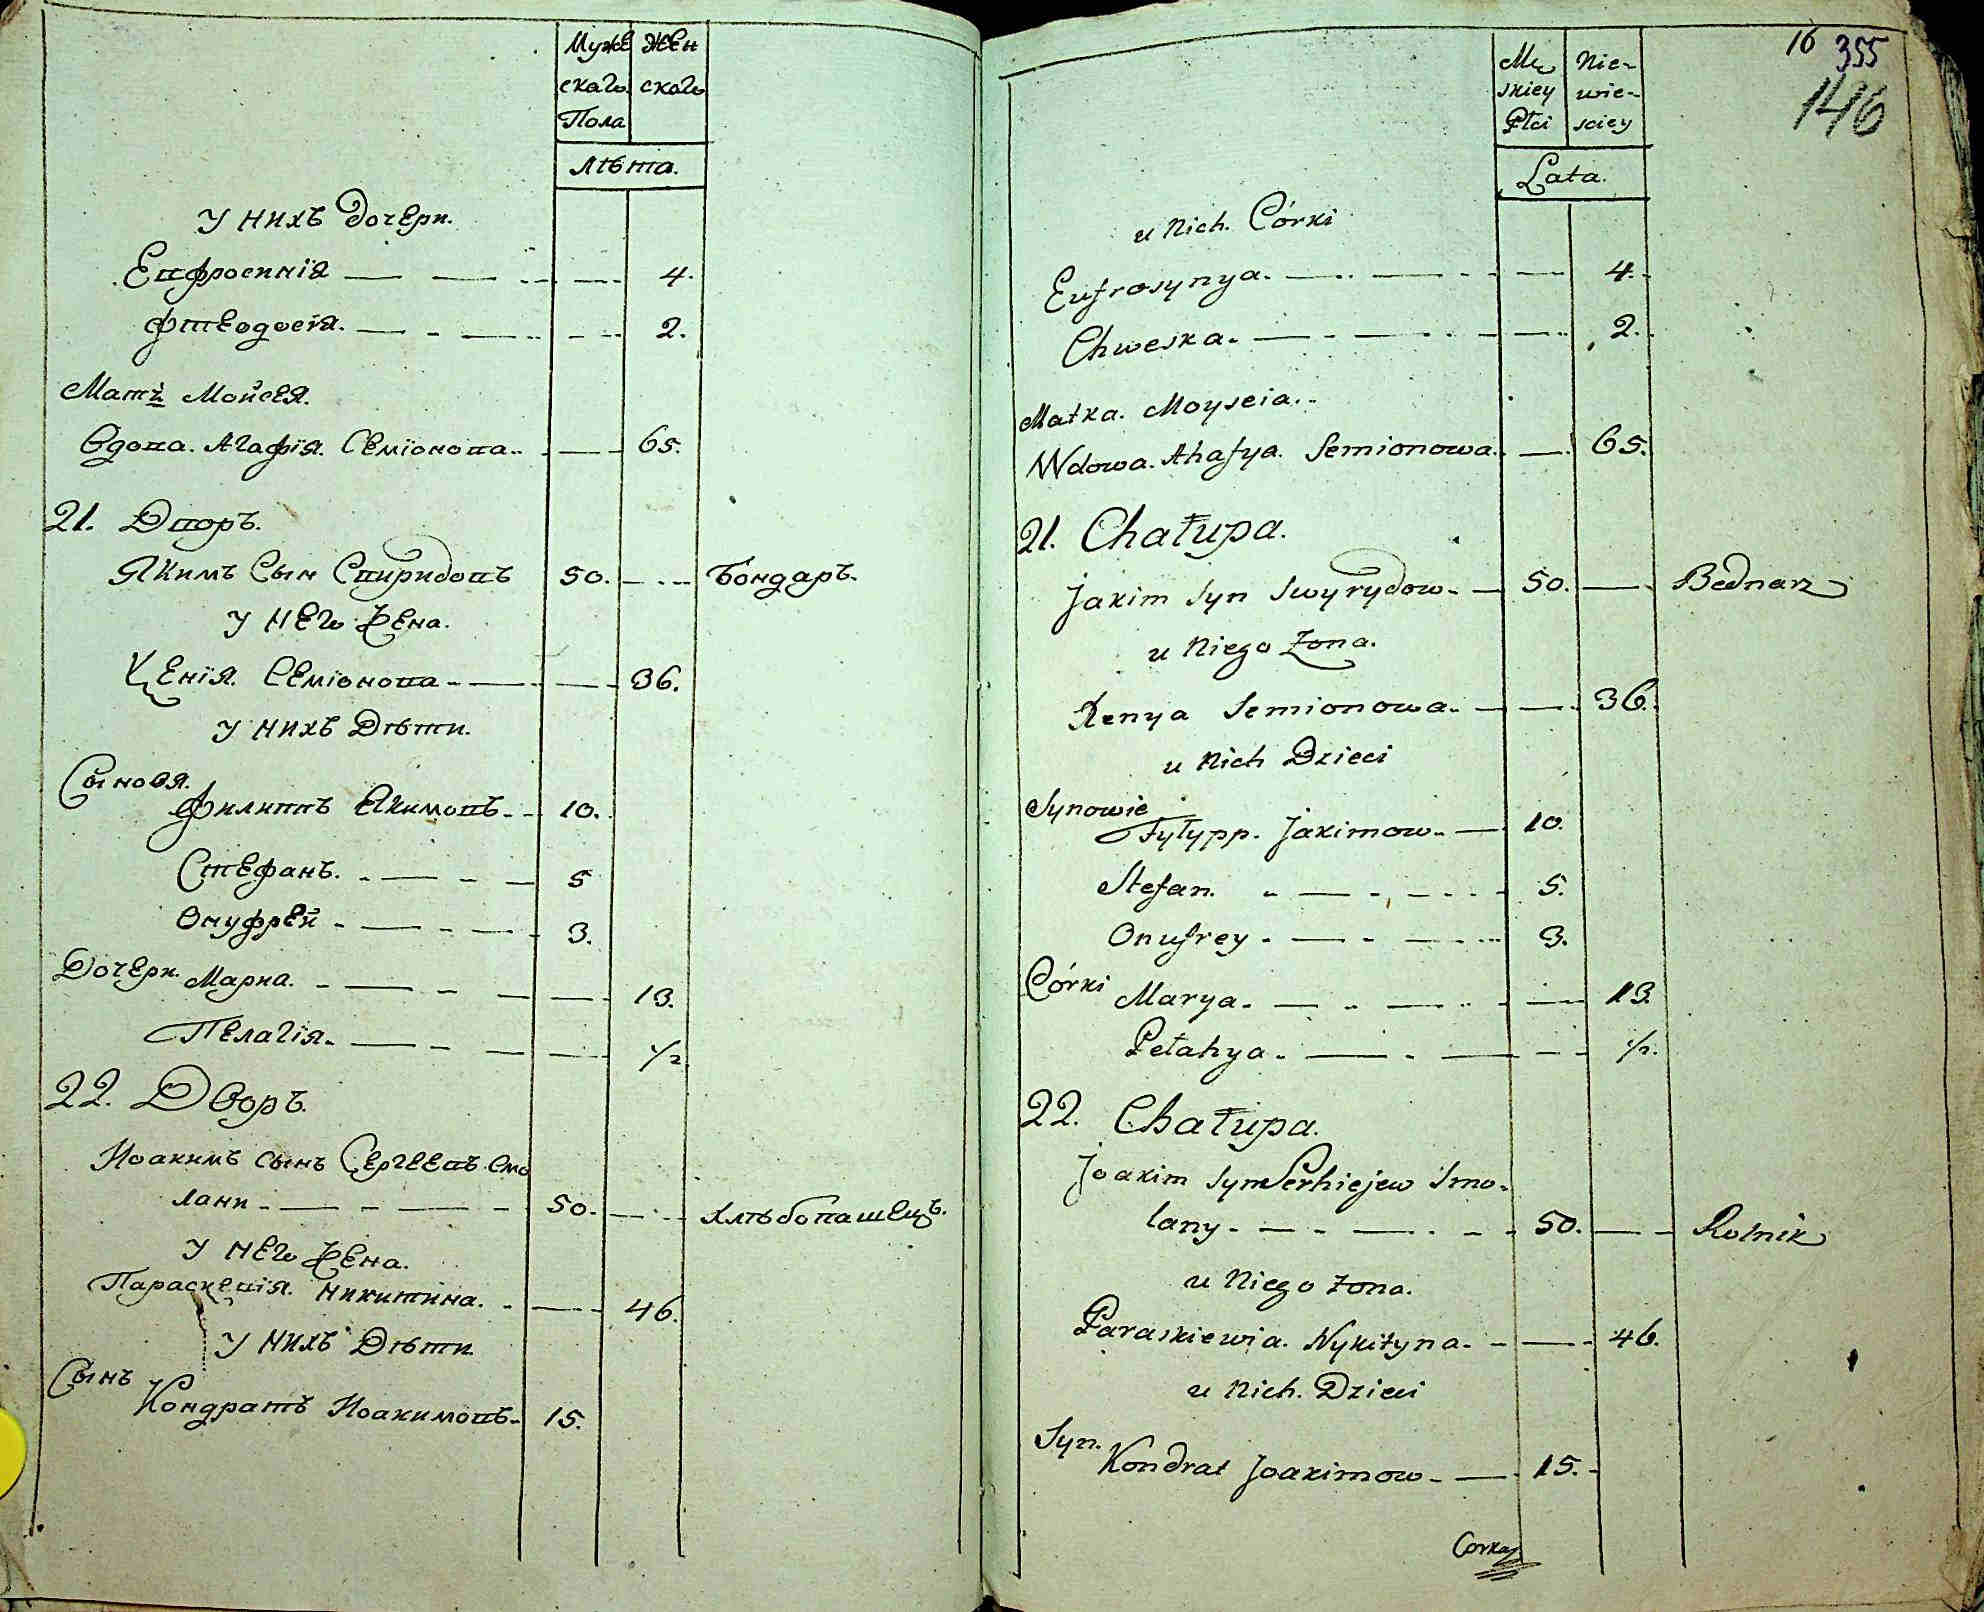 Муже Жен
скаго скаго
Пола
Лѣта.
У нихъ Дочери.
Евфросинія 4.
Фтеодосія. 2.
Мать Мойсея.
Вдова. Агафія. Семіонова 65.
21. Дворъ.
Якимъ Сын Спиридовъ 50. Бондаръ.
У него Жена.
Ксенія. Семіонова 36.
У нихъ Дѣти.
Сыновя.
Филиппъ Якимовъ 10.
Стефанъ. 5
Онуфрей 3.
Дочери. Мариа. 13.
Пелагія. 1/2
22. Дворъ.
Иоакимъ сынъ Сергеевъ Смо
лани 50. Хлѣбопашецъ.
У него Жена.
Параскевія. Никитина. 46.
У нихъ Дѣти
Сынъ
Кондратъ Иоакимовъ 15.
16 355
146
Mę Nie-
skiey wie-
Płci sciey
Lata.
u Nich. Córki
Eufrosynya. 4.
Chweska. 2.
Matka. Moyseia.
Wdowa. Ahafya. Semionowa. 65.
21. Chałupa.
Jakim Syn Swyrydow 50. Bednarz
u Niego Żona.
Xenya Semionowa. 36.
u Nich Dzieci
Synowie
Fyłypp. Jakimow. 10.
Stefan. 5.
Onufrey 3.
Córki Marya. 13.
Pełahya. 1/2.
22. Chałupa.
Joakim Syn Serhiejew Smo-
lany 50. Rolnik
u Niego Żona.
Paraskiewia. Nykityna. 46.
u Nich. Dzieci
Syn.
Kondrat Joakimow 15.
Corka